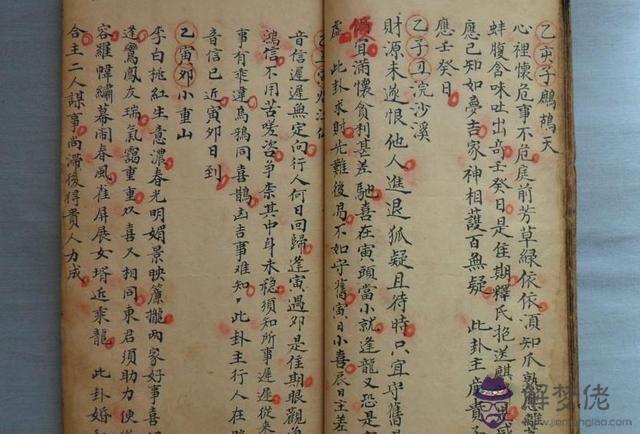 乙寅子鷓鴣天
心裡懷危事不危庭前芳草綠依依須知爪熟離
蚌腹含味吐出奇壬癸日是佳期釋氏抱送麒是
應已知如夢吉家神相護百無疑 此卦主
應壬癸日
乙子丑浣沙溪
財源未遂恨他人進退狐疑且待時只宜守舊
傾宜滿懷貪利甚差馳喜在寅頭當小就逢龍又恐是
虛 此卦求財先難後易不如守舊寅日小喜辰日主差
音信遲遲無定向行人何日回歸逢寅過卯是佳期眼觀
鴻信不用苦嗟咨爭奈其中斗未穩須知所事遲遲從來
事有乖違烏鴉同喜鵲凶吉事難知 此卦主行人在
音信已近寅卯日到
乙寅卯小重山
李白桃紅生意濃春光明媚景映簾攏兩家好事喜
逢鸞鳳友瑞氣靄重重双喜又相同東君須助力便
容羅幃繡幕鬧春風雀屏展女壻近乘龍 此卦婚
合主二人謀事尚滯後得貴人力成
解梦佬
www.jiemenglao.com